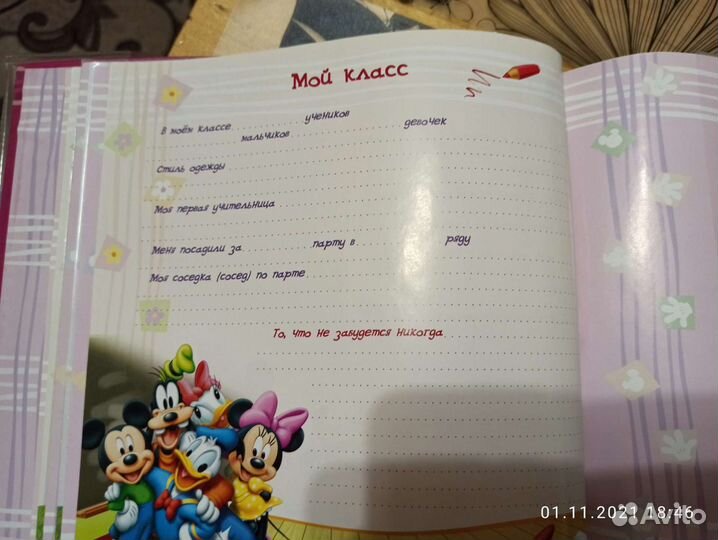 Мой класс
В моём классе учеников
мальчиков девочек
Стиль одежды
Моя первая учительница
Меня посадили за парту в ряду
Моя соседка (сосед) по парте
То, что не забудется никогда
01.11.2021 18:46
Avito